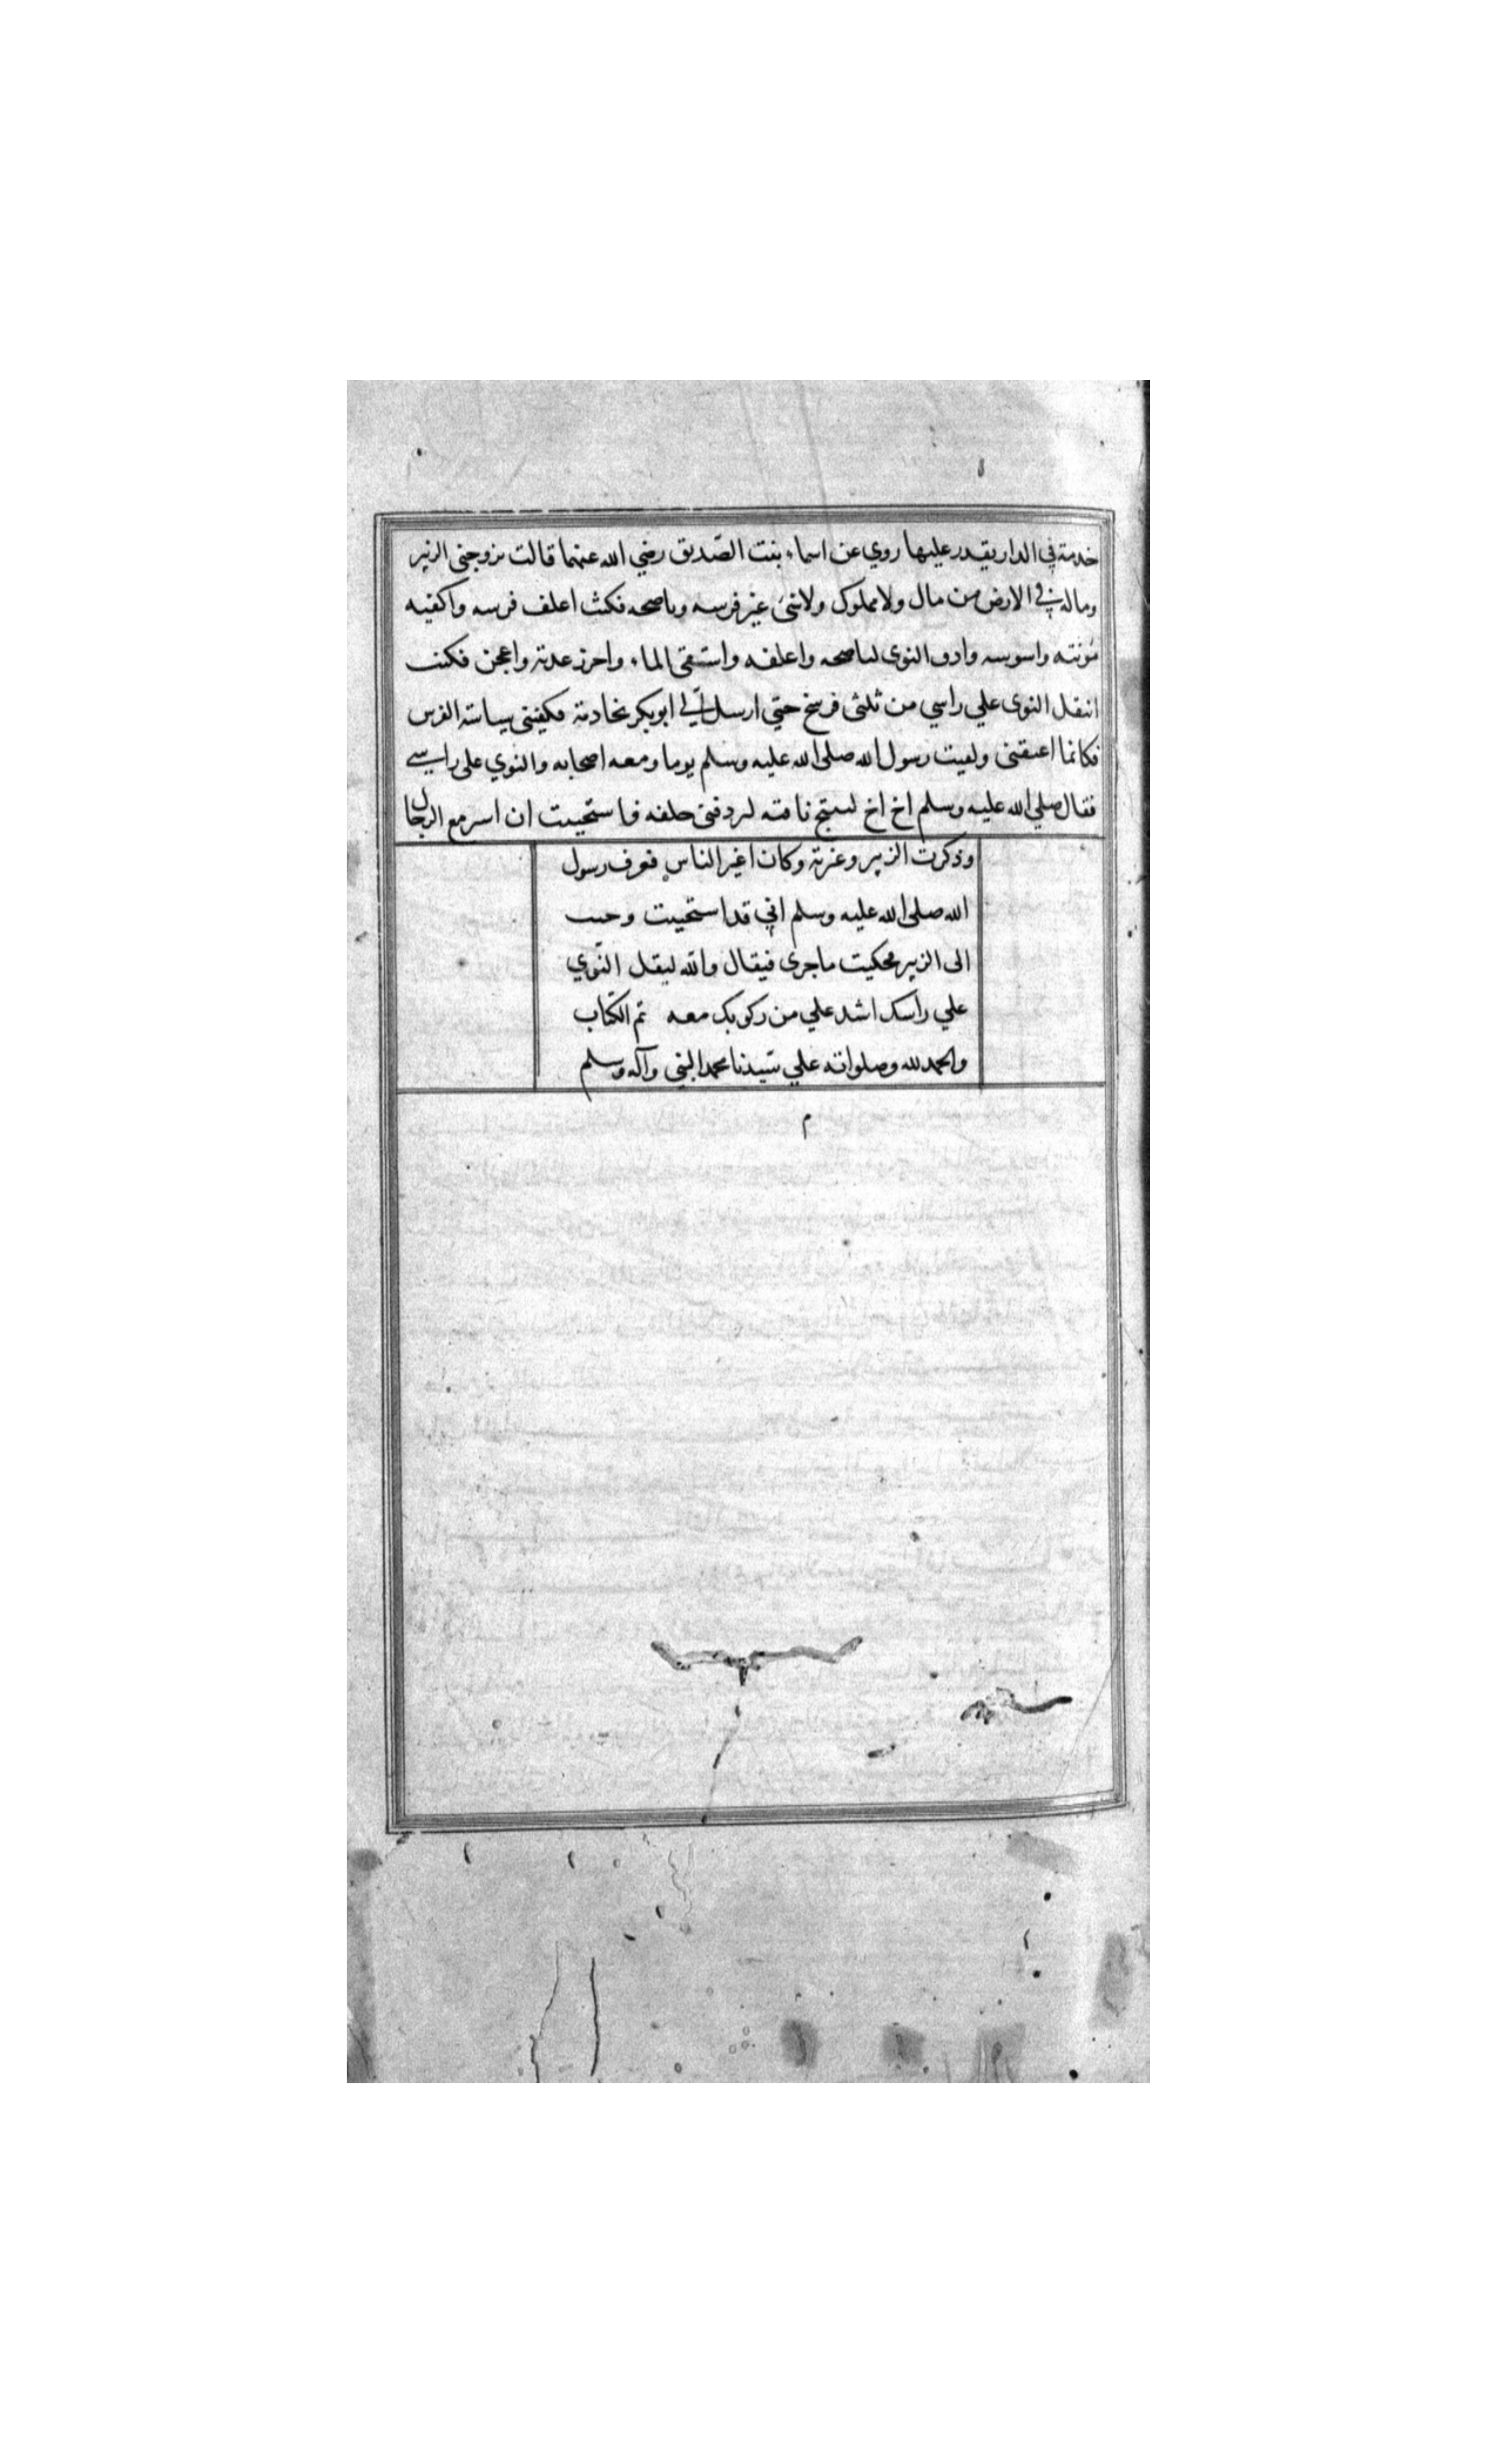 خدمة في الدار يقدر عليها روي عن اسماء بنت الصّديق رضي الله عنهما قالت تزوجني الزبير
وماله في الارض من مال ولا مملوك ولا شئ غير فرسه وناضحه فكنت اعلف فرسه واكفيه
مؤنته واسوسه وادق النوى لناضحه واعلفه واستقي الماء واخرز غربه واعجن فكنت
انقل النوى علي راسي من ثلثي فرسخ حتي ارسل الي ابو بكر بخادمة فكفيتني سياسة الفرس
فكانما اعتقني ولقيت رسول الله صلى الله عليه وسلم يوما ومعه اصحابه والنوي على راسي
فقال صلي الله عليه وسلم اخ اخ لينيخ ناقته ليردفني خلفه فاستحييت ان اسير مع الرجال
وذكرت الزبير وغيرته وكان اغير الناس فعرف رسول
الله صلى الله عليه وسلم اني قد استحييت وجئت
الى الزبير فحكيت ما جرى فيقال والله لنقل النّوي
علي راسك اشد علي من ركوبك معه تم الكتاب
والحمد لله وصلواته علي سيّدنا محمد النبي وآله وسلم
م